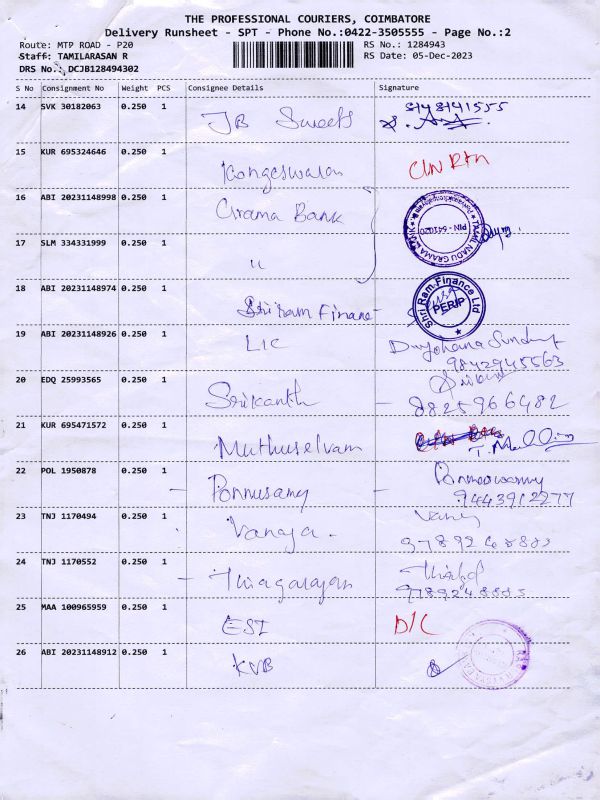 THE PROFESSIONAL COURIERS, COIMBATORE
Delivery Runsheet - SPT - Phone No.:0422-3505555 - Page No.:2
Route: MTP ROAD - P20 RS No.: 1284943
Staff: TAMILARASAN R RS Date: 05-Dec-2023
DRS No.: DCJB128494302
S No Consignment No Weight PCS Consignee Details Signature
14 SVK 30182063 0.250 1 JB Sweets 8148141555
15 KUR 695324646 0.250 1 Kongeswaran C/N Rtn
16 ABI 20231148998 0.250 1 Grama Bank TAMIL NADU GRAMA PIN - 641020
17 SLM 334331999 0.250 1 "
18 ABI 20231148974 0.250 1 Sriram Finance Shri Ram Finance Ltd PERIP
19 ABI 20231148926 0.250 1 LIC
9842945563
20 EDQ 25993565 0.250 1 Srikanth - 8825966482
21 KUR 695471572 0.250 1 Muthuselvam
22 POL 1950878 0.250 1 - Ponnusamy - Ponnuswamy
9443912277
23 TNJ 1170494 0.250 1 Vanaja
24 TNJ 1170552 0.250 1 - Thiagarajan
25 MAA 100965959 0.250 1 ESI D/C
26 ABI 20231148912 0.250 1 KVB